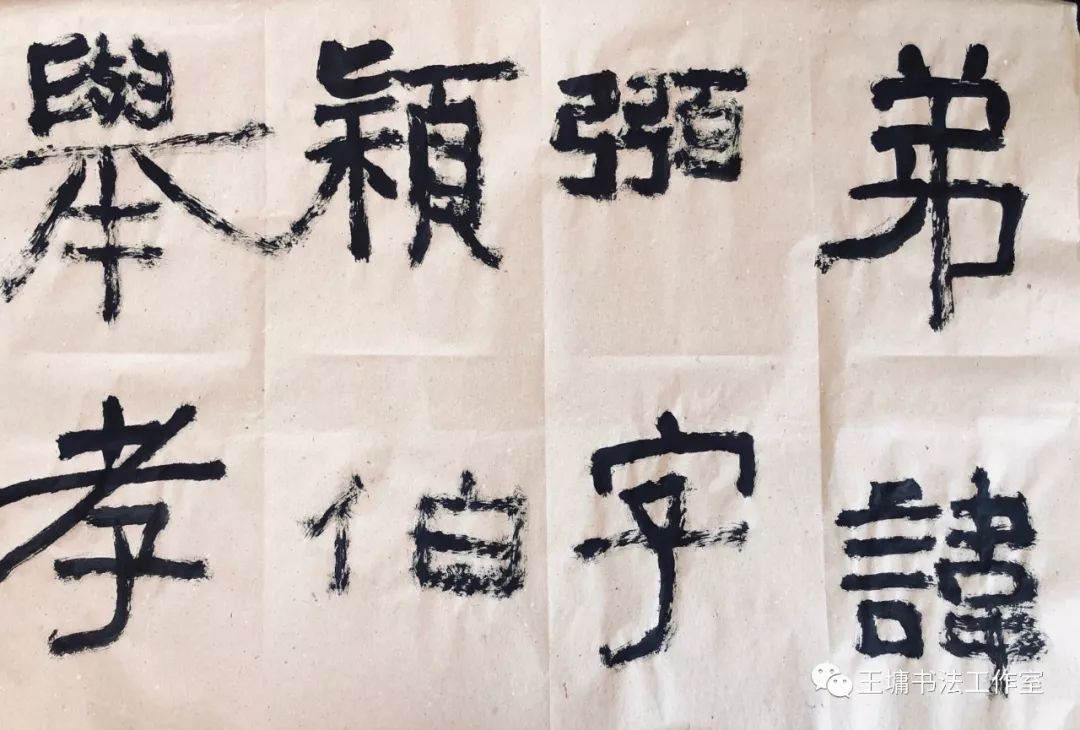 弟諱
弻字
穎伯
舉孝
王墉书法工作室